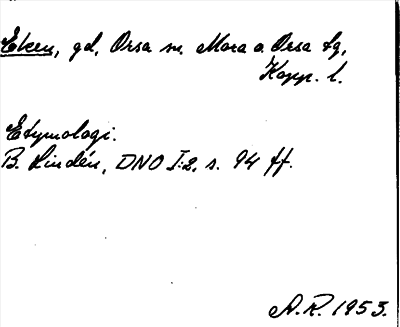 Eken, gd, Orsa sn. Mora o Orsa tg,
Kopp. l.
Etymologi.
B. Lindén, DNO I:2, s. 94 ff.
A.R. 1953.